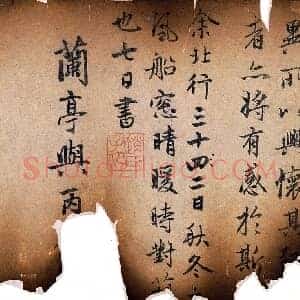 異所以興懷其
者亦將有感於斯
余北行三十二日秋冬
風船窓晴暖時對
也七日書
蘭亭與丙